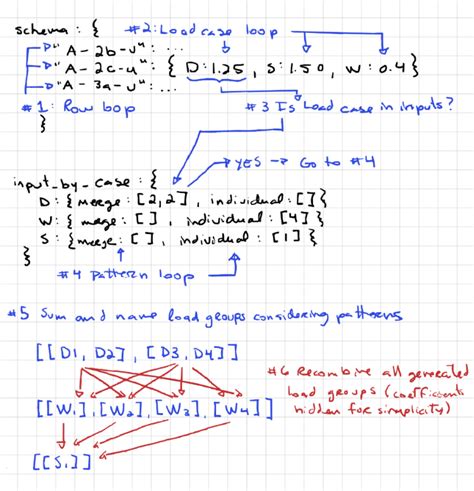 schema : {   #2: Load case loop
"A - 2b - v" : ...
"A - 2c - u" : { D : 1.25 , S : 1.50 , W : 0.4 }
"A - 3a - v" : ...
#1 : Row loop
}
#3 Is Load case in inputs?
YES → Go to #4
input_by_case : {
D : { merge : [2,2] , individual : [] }
W : { merge : [ ] , individual : [4] }
S : { merge : [ ] , individual : [1] }
}
#4 Pattern loop
#5 Sum and name load groups considering patterns
[[D1, D2] , [D3, D4]]
#6 Recombine all generated
load groups (coefficients
hidden for simplicity)
[[W1] , [W2] , [W3] , [W4]]
[[S1]]